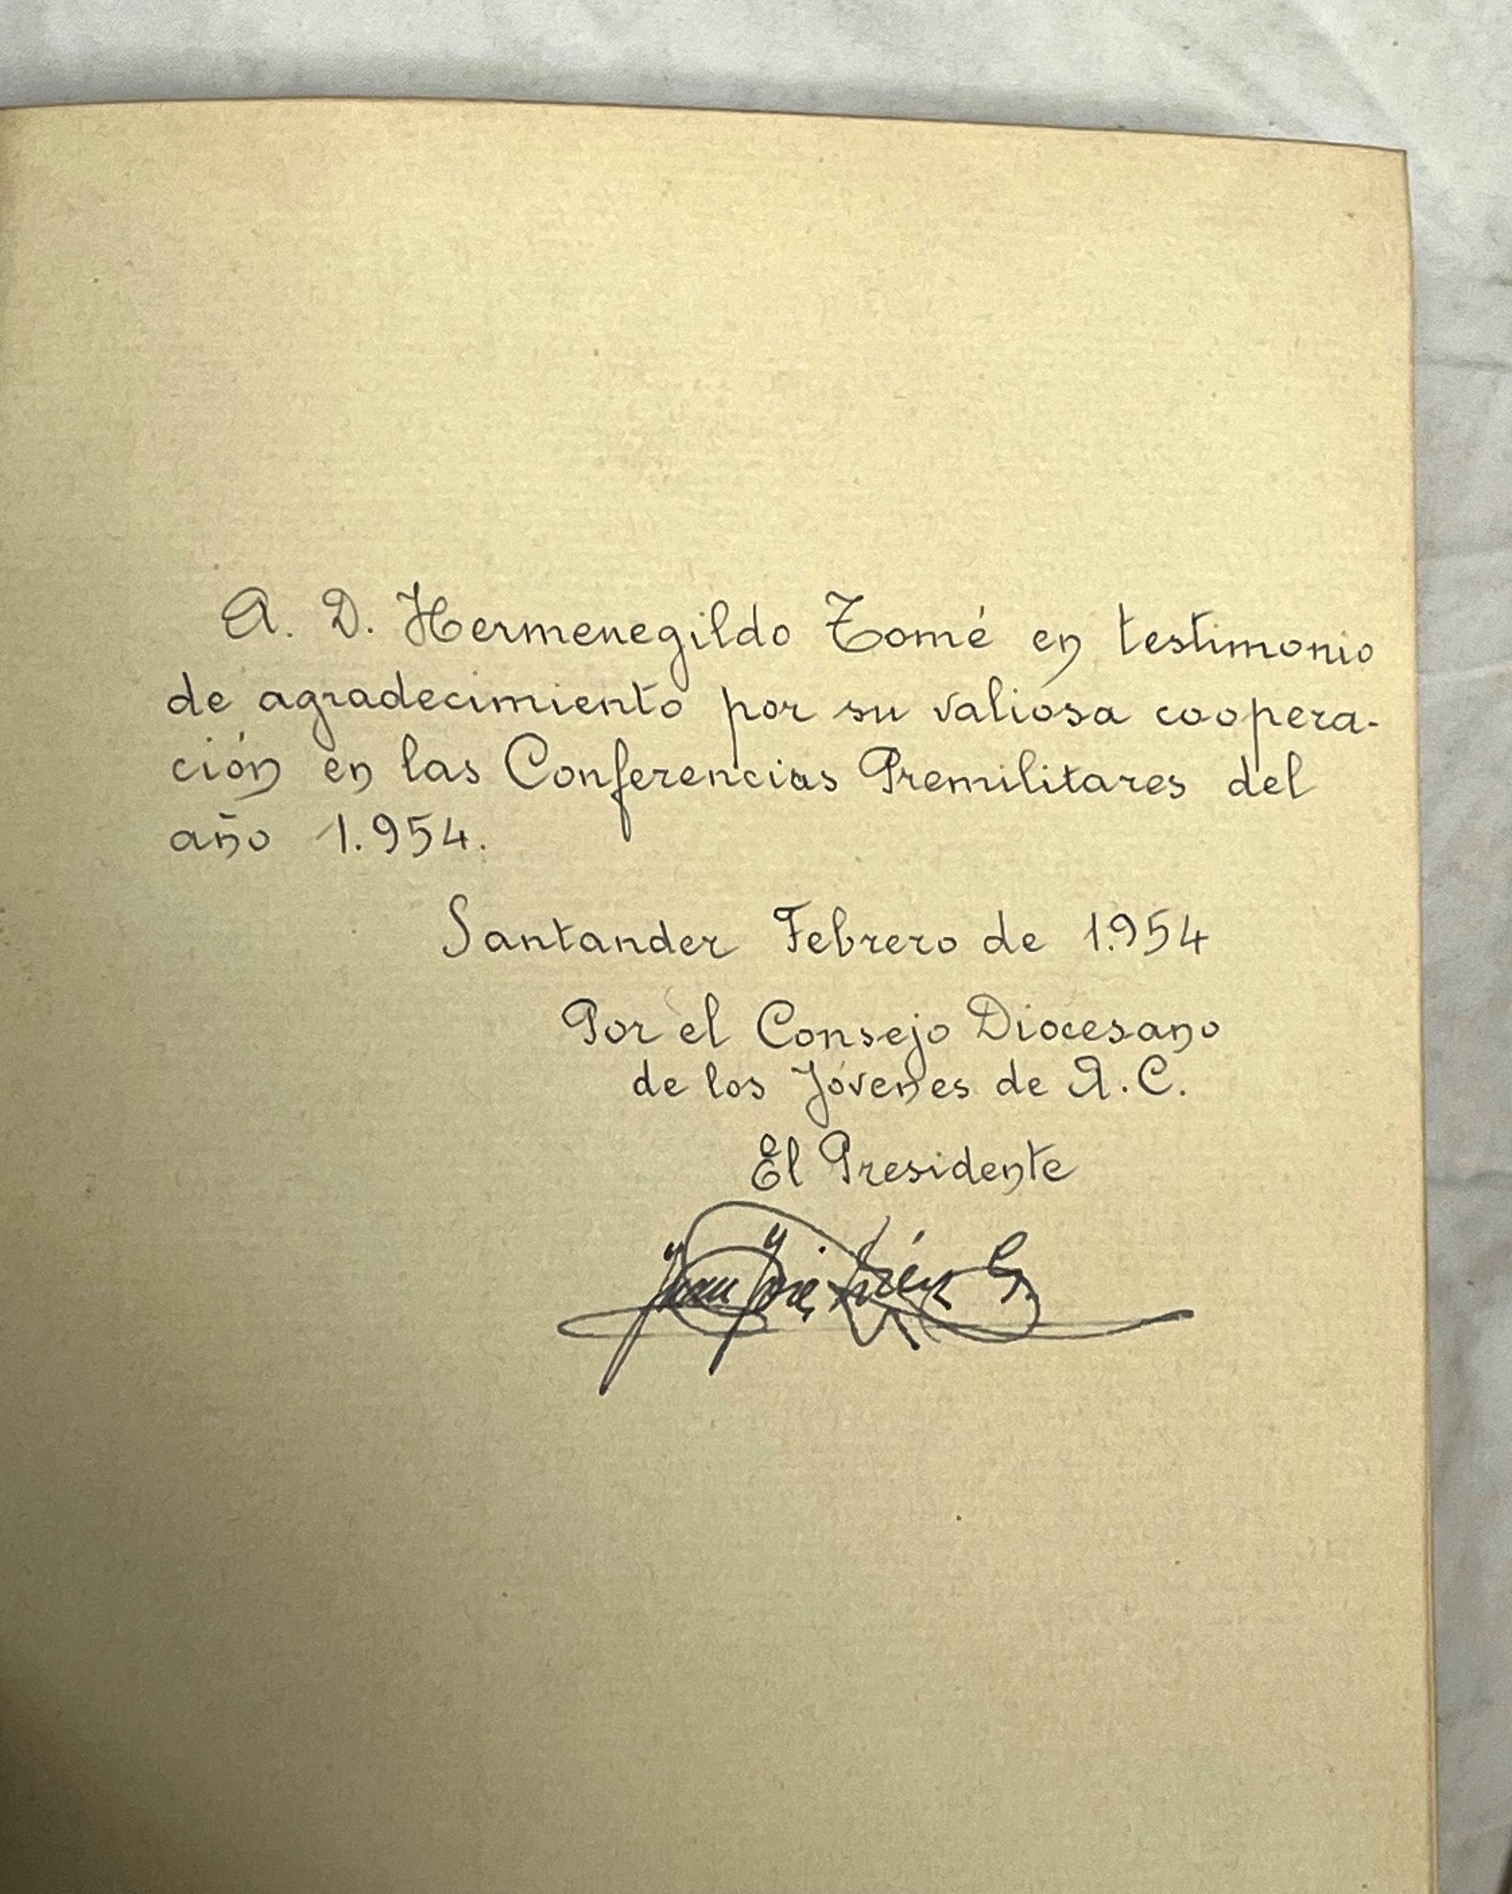 A. D. Hermenegildo Tomé en testimonio
de agradecimiento por su valiosa coopera-
ción en las Conferencias Premilitares del
año 1.954.
Santander Febrero de 1.954
Por el Consejo Diocesano
de los Jóvenes de A.C.
El Presidente
Juan José